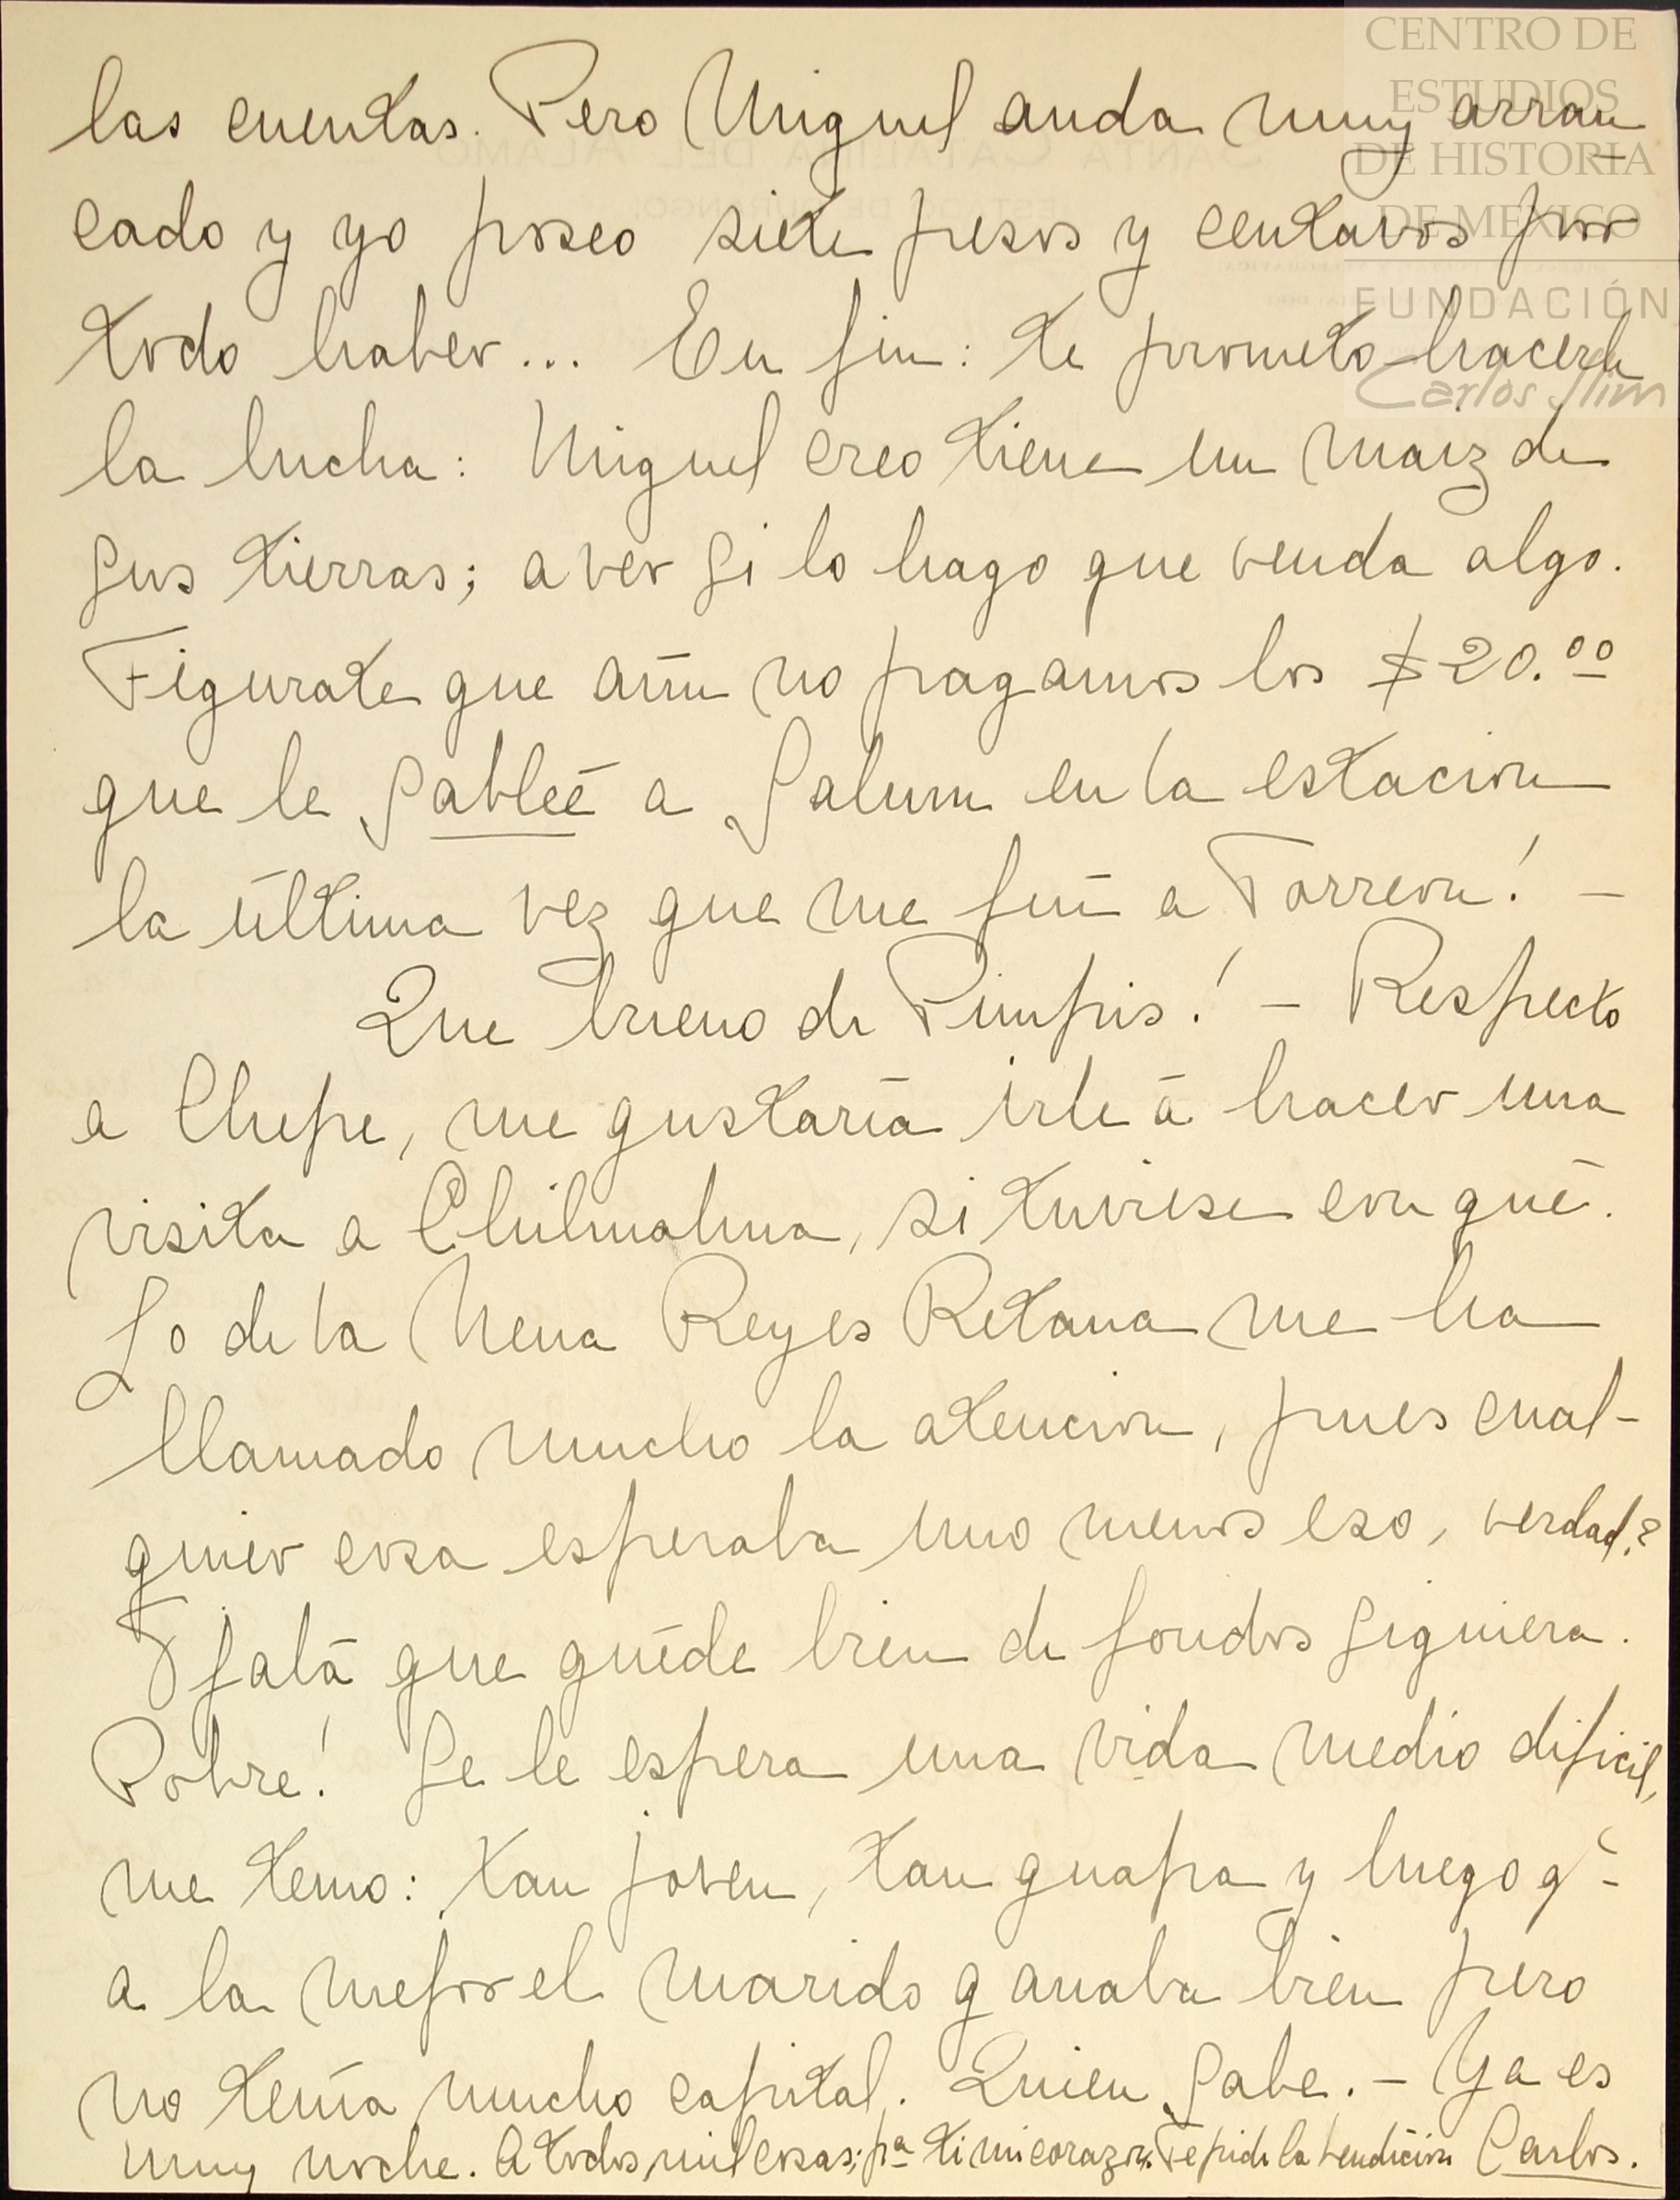 CENTRO DE
ESTUDIOS
DE HISTORIA
DE MÉXICO
FUNDACIÓN
Carlos Slim
las cuentas. Pero Miguel anda muy arran
cado y yo poseo siete pesos y centavos por
todo haber... En fin: te prometo hacerle
la lucha: Miguel creo tiene un maiz de
sus tierras; a ver si lo hago que venda algo.
Figurate que aún no pagamos los $20.00
que le sableé a Salum en la estacion
la última vez que me fuí a Torreon! —
Que bueno de Pimpis! — Respecto
a Chepe, me gustaría irle á hacer una
visita a Chilmahua, si tuviese con qué.
Lo de la Nena Reyes Retana me ha
llamado mucho la atencion, pues cual-
quier cosa esperaba uno menos eso, verdad?
Ojalá que quéde bien de fondos siquiera.
Pobre! Se le espera una vida medio dificil,
me temo: tan joven, tan guapa y luego q'
a la mejor el marido ganaba bien pero
no tenía mucho capital. Quien sabe. — Ya es
muy noche. A todos, mil cosas; pa ti mi corazon. Te pide la bendición Carlos.